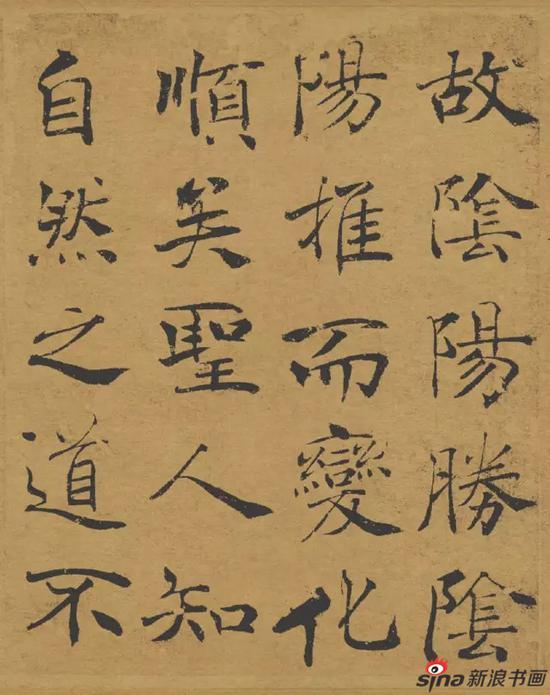 故陰陽勝陰
陽推而變化
順矣聖人知
自然之道不
sina新浪书画